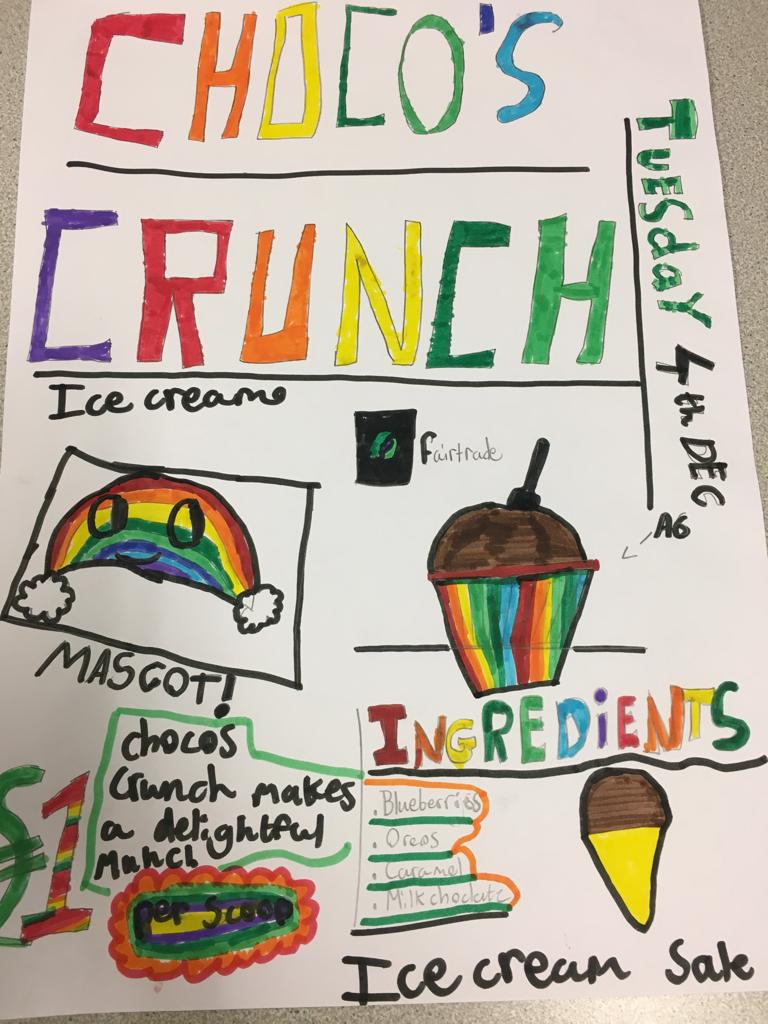 CHOCO'S
CRUNCH
TUESdAY 4th DEC
Ice cream
fairtrade
A6
MASCOT!
INGREDiENTS
chocos
Crunch makes
a delightful
Munch
$1
per scoop
. Blueberries
. Oreos
. Caramel
. Milk choclate
Ice cream Sale